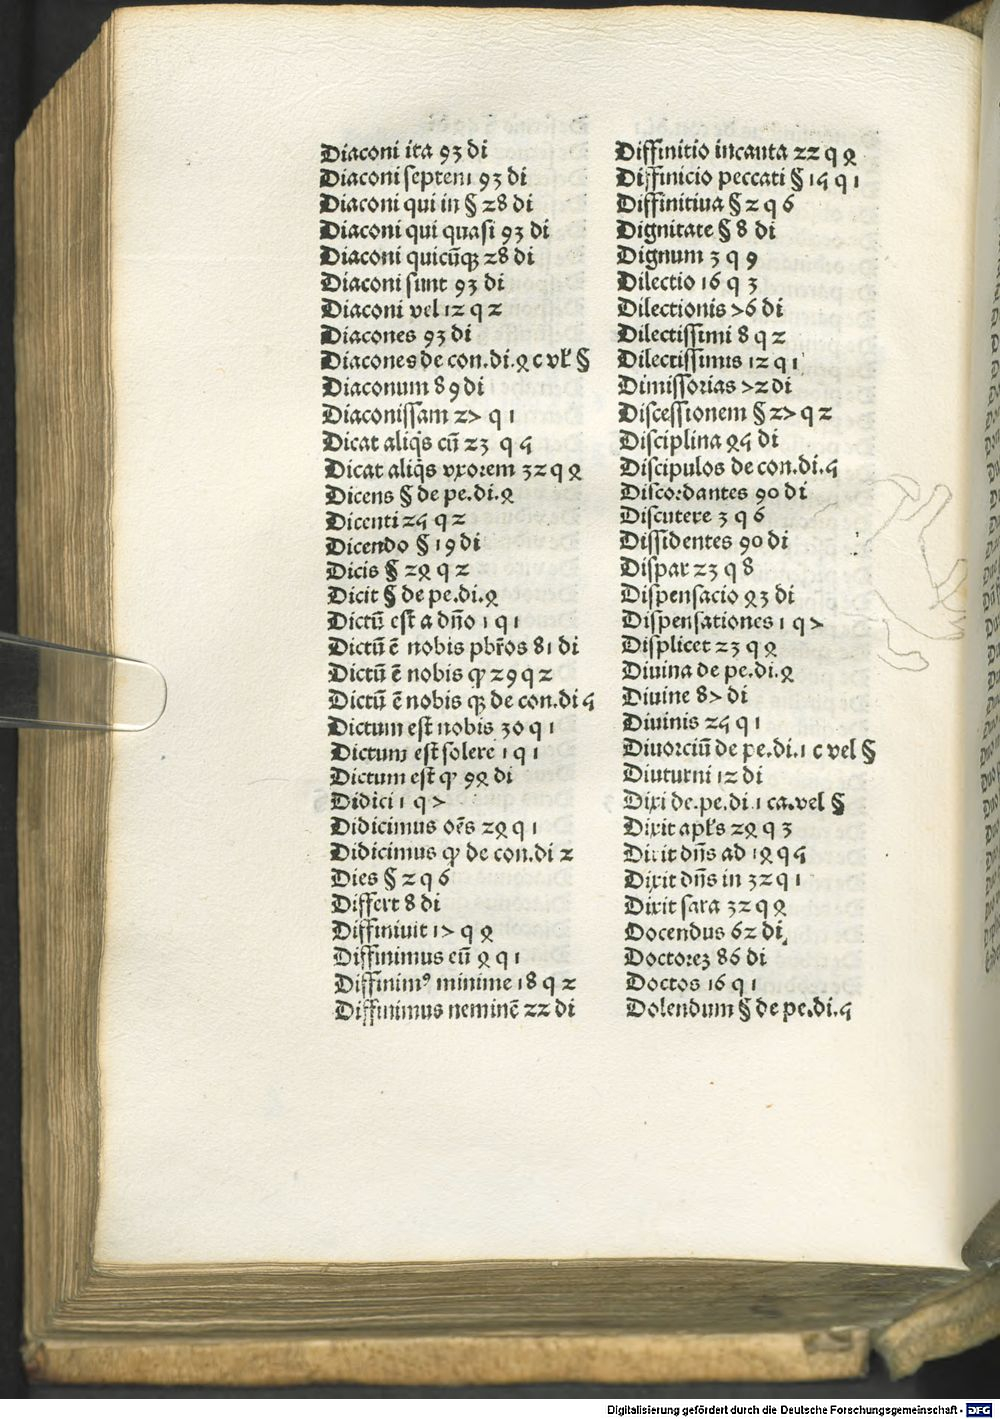 Diaconi ita 93 di
Diaconi septem 93 di
Diaconi qui in § 28 di
Diaconi qui quasi 93 di
Diaconi quicūqꝫ 28 di
Diaconi sunt 93 di
Diaconi vel 12 q 2
Diacones 93 di
Diacones de con.di.4 c vƚ §
Diaconum 89 di
Diaconissam 27 q 1
Dicat aliq̄s cū 23 q 5
Dicat aliq̄s vxorem 32 q 4
Dicens § de pe.di.4
Dicenti 25 q 2
Dicendo § 19 di
Dicis § 24 q 2
Dicit § de pe.di.4
Dictū est a dn̄o 1 q 1
Dictū ē nobis pbr̄os 81 di
Dictū ē nobis ꝙ 29 q 2
Dictū ē nobis qꝫ de con.di 5
Dictum est nobis 30 q 1
Dictum est solere 1 q 1
Dictum est ꝙ 94 di
Didici 1 q 7
Didicimus oēs 24 q 1
Didicimus ꝙ de con.di 2
Dies § 2 q 6
Differt 8 di
Diffiniuit 17 q 4
Diffinimus cū 4 q 1
Diffinimꝰ minime 18 q 2
Diffinimus neminē 22 di
Diffinitio incauta 22 q 4
Diffinicio peccati § 15 q 1
Diffinitiua § 2 q 6
Dignitate § 8 di
Dignum 3 q 9
Dilectio 16 q 3
Dilectionis 76 di
Dilectissimi 8 q 2
Dilectissimus 12 q 1
Dimissorias 72 di
Discessionem § 27 q 2
Disciplina 45 di
Discipulos de con.di.5
Discordantes 90 di
Discutere 3 q 6
Dissidentes 90 di
Dispar 23 q 8
Dispensacio 43 di
Dispensationes 1 q 7
Displicet 23 q 4
Diuina de pe.di.4
Diuine 87 di
Diuinis 25 q 1
Diuorciū de pe.di.1 c vel §
Diuturni 12 di
Dixi de.pe.di.1 ca.vel §
Dixit apƚs 24 q 3
Dixit dn̄s ad 14 q 5
Dixit dn̄s in 32 q 1
Dixit sara 32 q 4
Docendus 62 di
Doctoreꝫ 86 di
Doctos 16 q 1
Dolendum § de pe.di.5
Digitalisierung gefördert durch die Deutsche Forschungsgemeinschaft - DFG